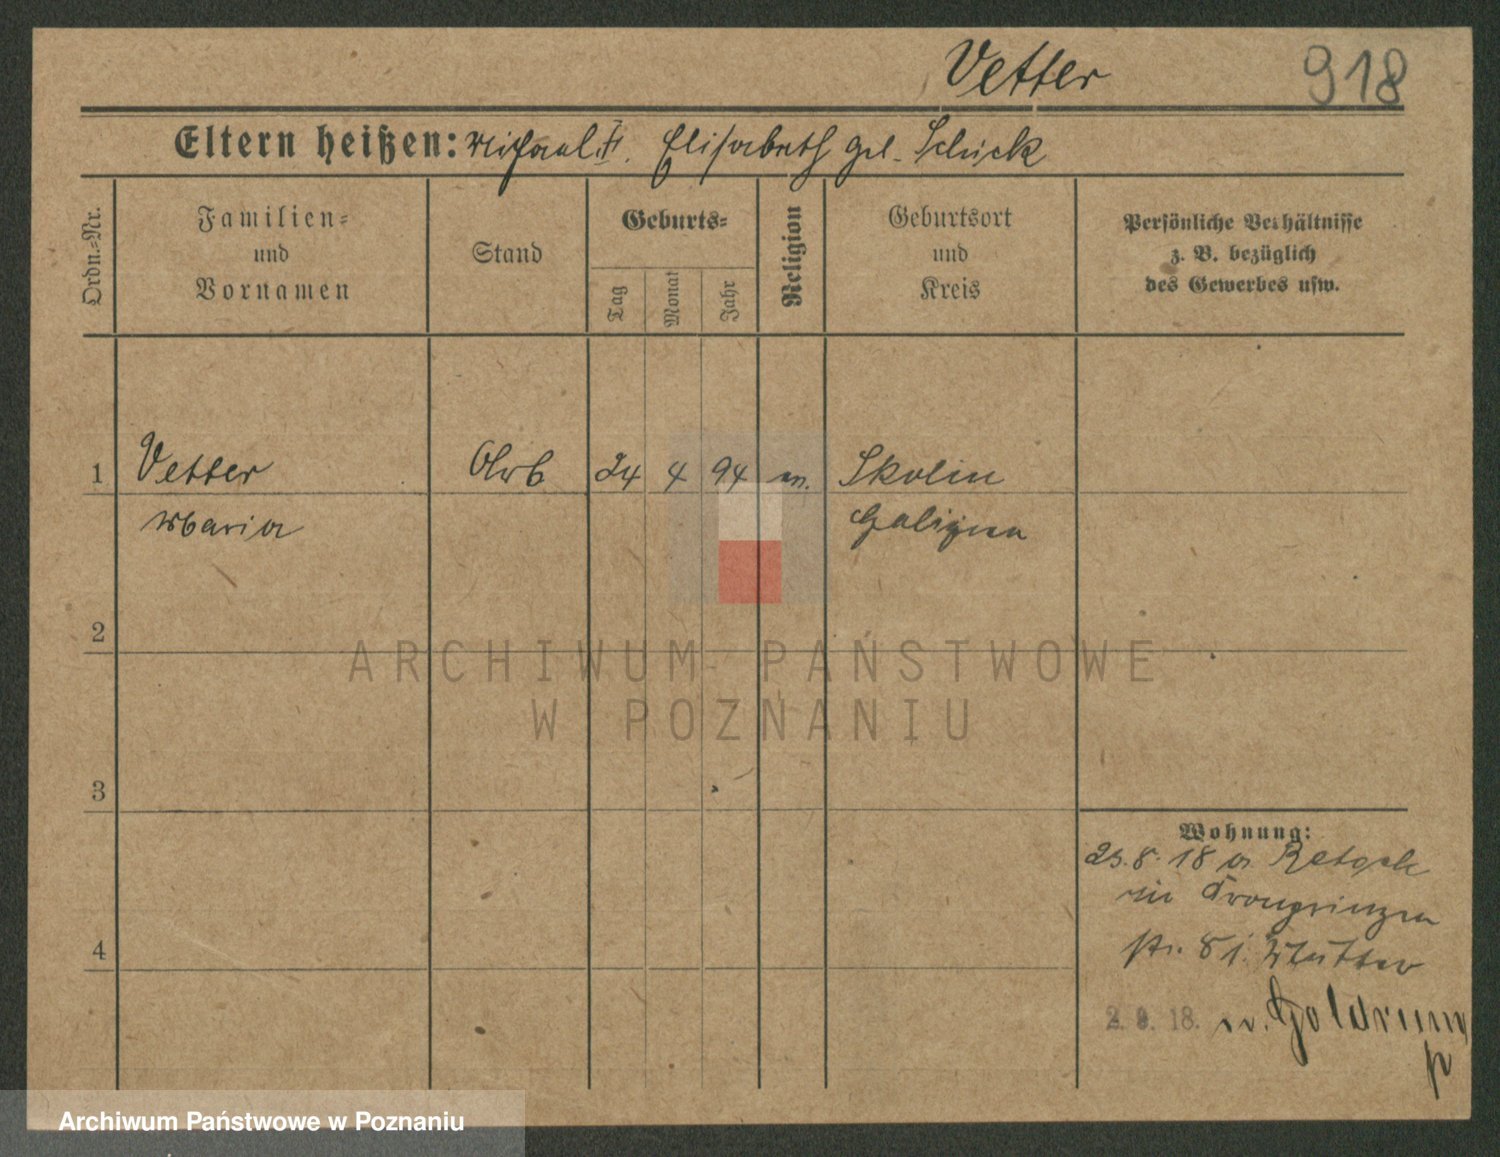 Vetter 918
Eltern heißen: Michael II. Elisabeth geb. Schick
Ordn.=Nr.
Familien=
und
Vornamen
Stand
Geburts=
Tag
Monat
Jahr
Religion
Geburtsort
und
Kreis
Persönliche Verhältnisse
z. B. bezüglich
des Gewerbes usw.
1 Vetter 24 4 94 Skolin
Maria Galizien
2
ARCHIWUM PAŃSTWOWE
W POZNANIU
3
4
Wohnung:
23.8.18 a.
Kronprinzen
str. 81. Mutter
2. 9. 18. n.
Archiwum Państwowe w Poznaniu